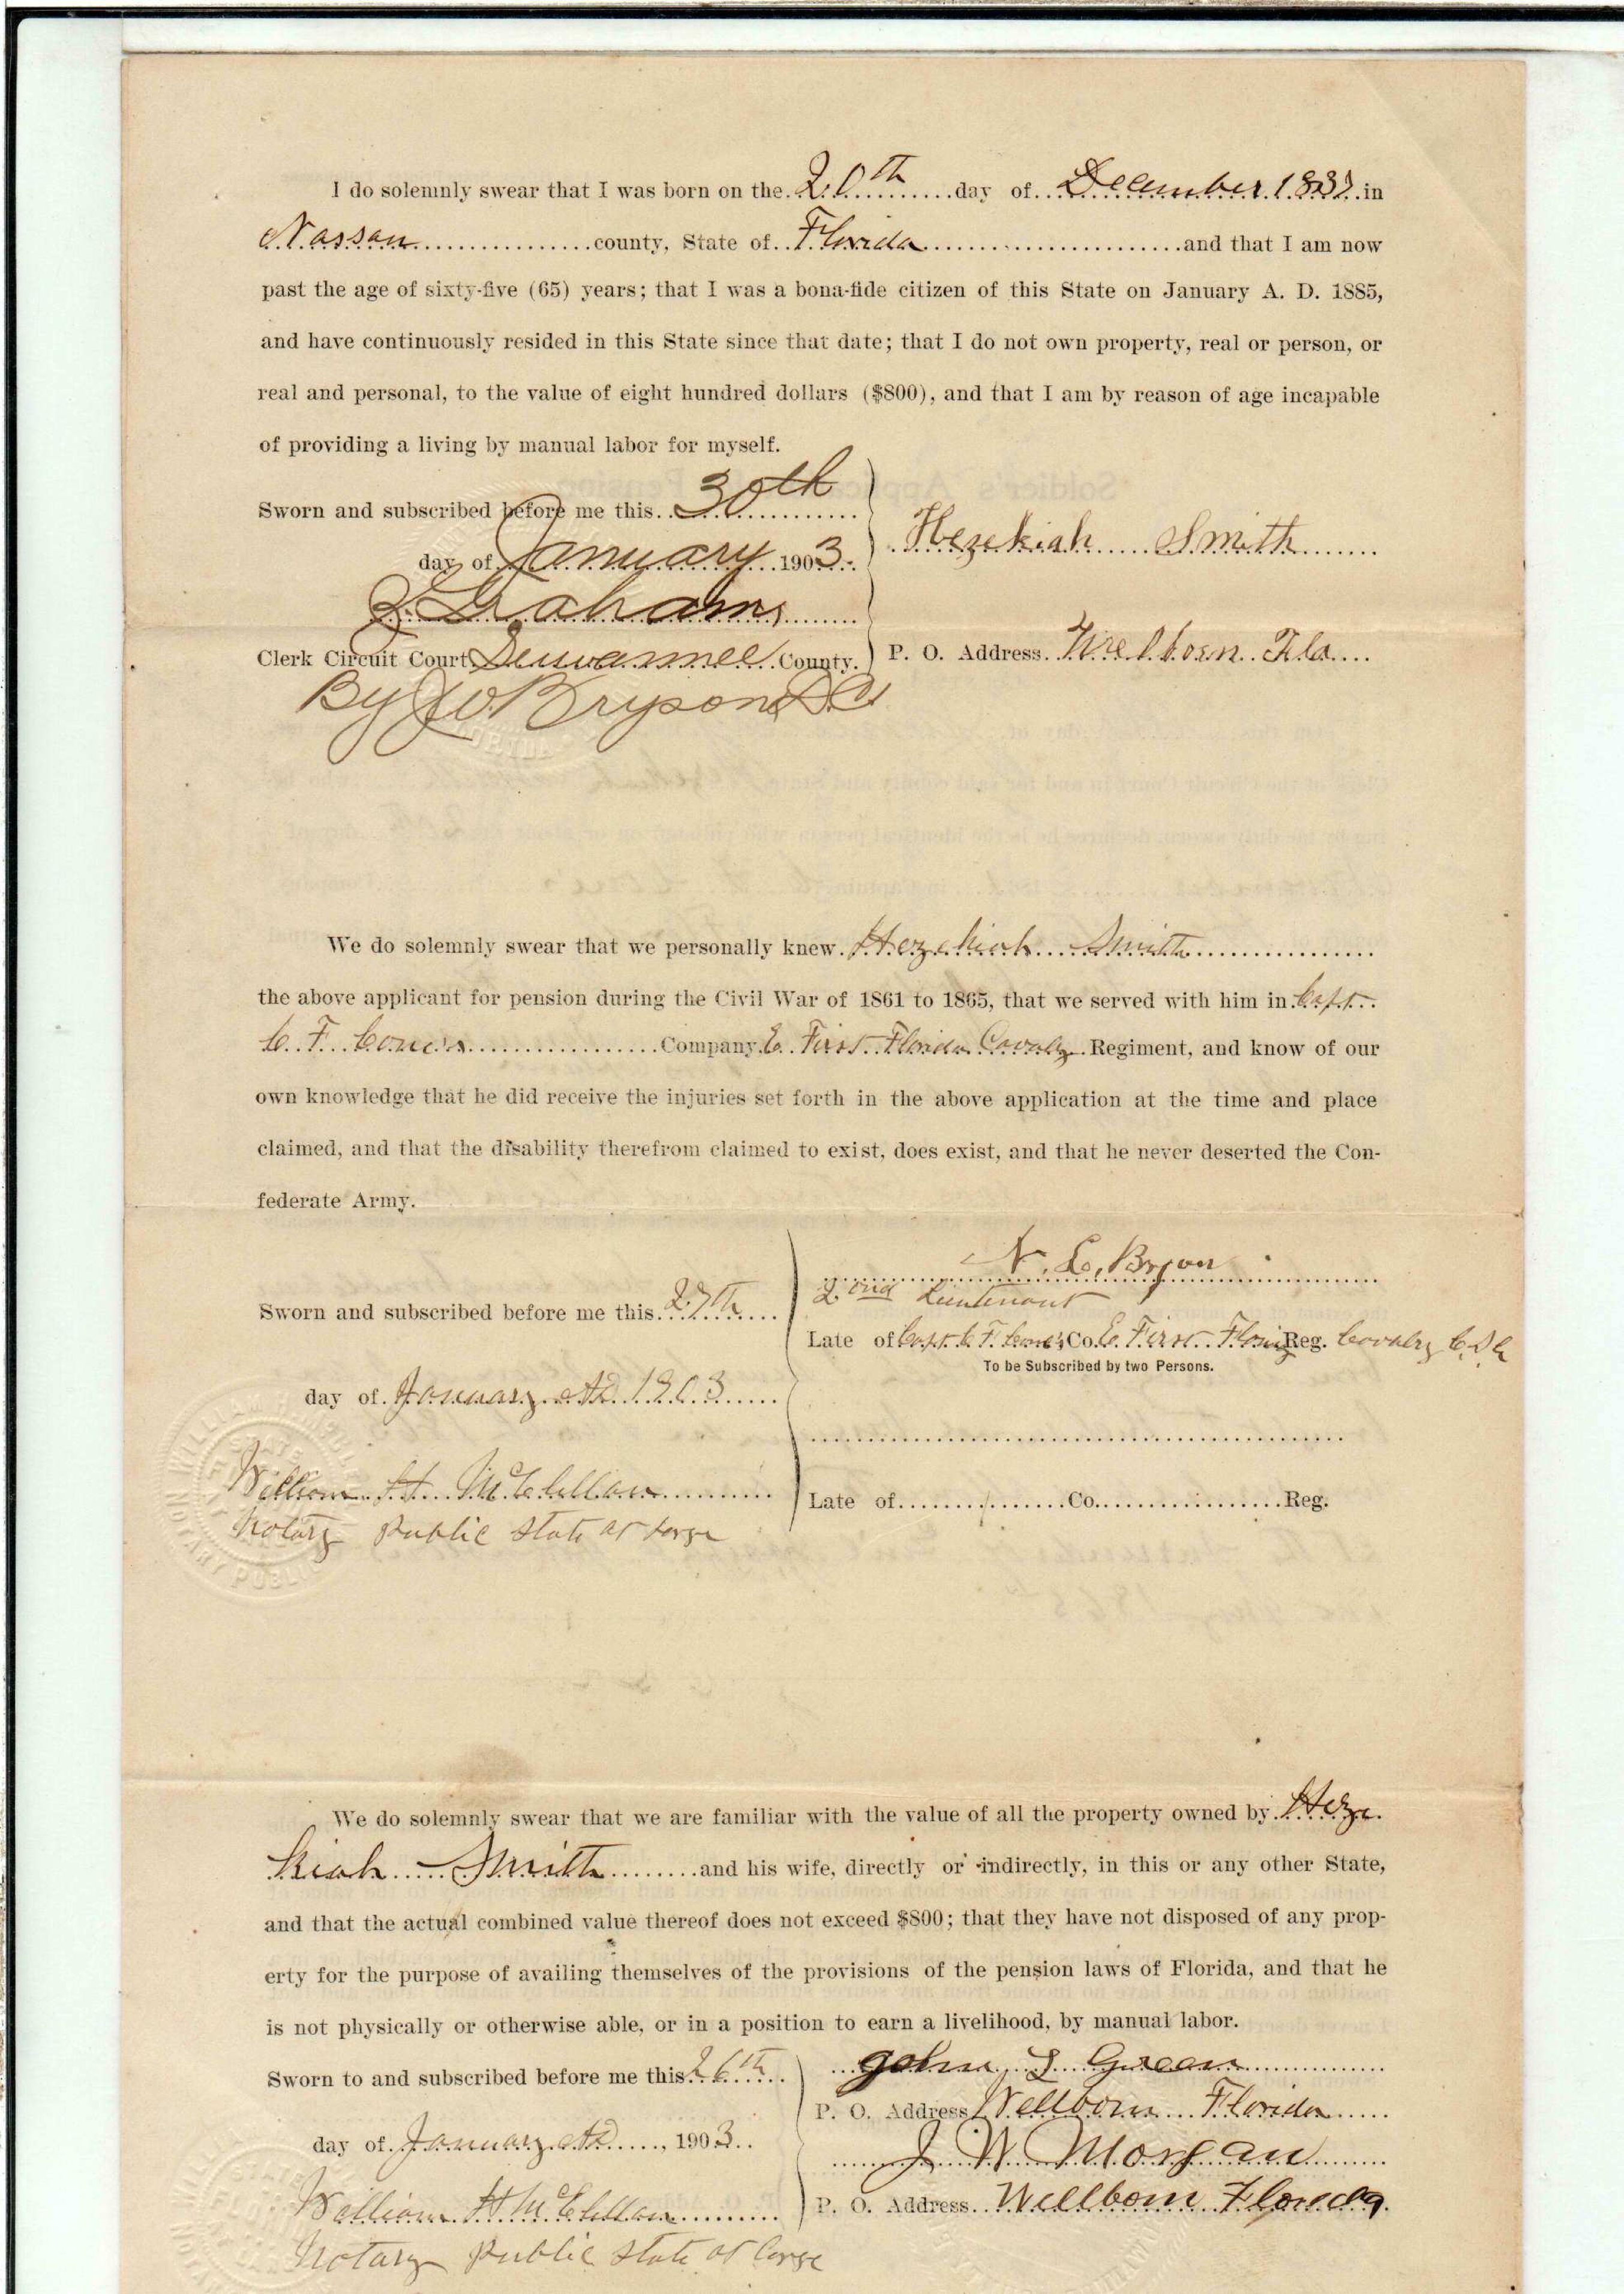 I do solemnly swear that I was born on the 20th day of December 1837 in
Nassau county, State of Florida and that I am now
past the age of sixty-five (65) years; that I was a bona-fide citizen of this State on January A. D. 1885,
and have continuously resided in this State since that date; that I do not own property, real or person, or
real and personal, to the value of eight hundred dollars ($800), and that I am by reason of age incapable
of providing a living by manual labor for myself.
Sworn and subscribed before me this 30th
day of January 1903.
Hezekiah Smith
Graham
Clerk Circuit Court Suwannee County.
P. O. Address. Welborn Fla
By J W Bryson D C
We do solemnly swear that we personally knew Hezekiah Smith
the above applicant for pension during the Civil War of 1861 to 1865, that we served with him in Capt.
C. F. Cone's Company E First Florida Cavalry Regiment, and know of our
own knowledge that he did receive the injuries set forth in the above application at the time and place
claimed, and that the disability therefrom claimed to exist, does exist, and that he never deserted the Con-
federate Army.
N. L. Bryan
2ond Lieutenant
Sworn and subscribed before me this 27th
Late of Capt. C F. Cone's Co. E. First Florida Reg. Cavalry C.S.A
To be Subscribed by two Persons.
day of January AD 1903
William H. McClellan
Late of Co. Reg.
Notary Public State at Large
We do solemnly swear that we are familiar with the value of all the property owned by Heze
kiah Smith and his wife, directly or indirectly, in this or any other State,
and that the actual combined value thereof does not exceed $800; that they have not disposed of any prop-
erty for the purpose of availing themselves of the provisions of the pension laws of Florida, and that he
is not physically or otherwise able, or in a position to earn a livelihood, by manual labor.
Sworn to and subscribed before me this 26th
John L Green
P. O. Address Wellborn Florida
day of January AD, 1903.
J. W. Morgan
William H McClellan
P. O. Address. Wellborn Florida.
Notary Public State at Large